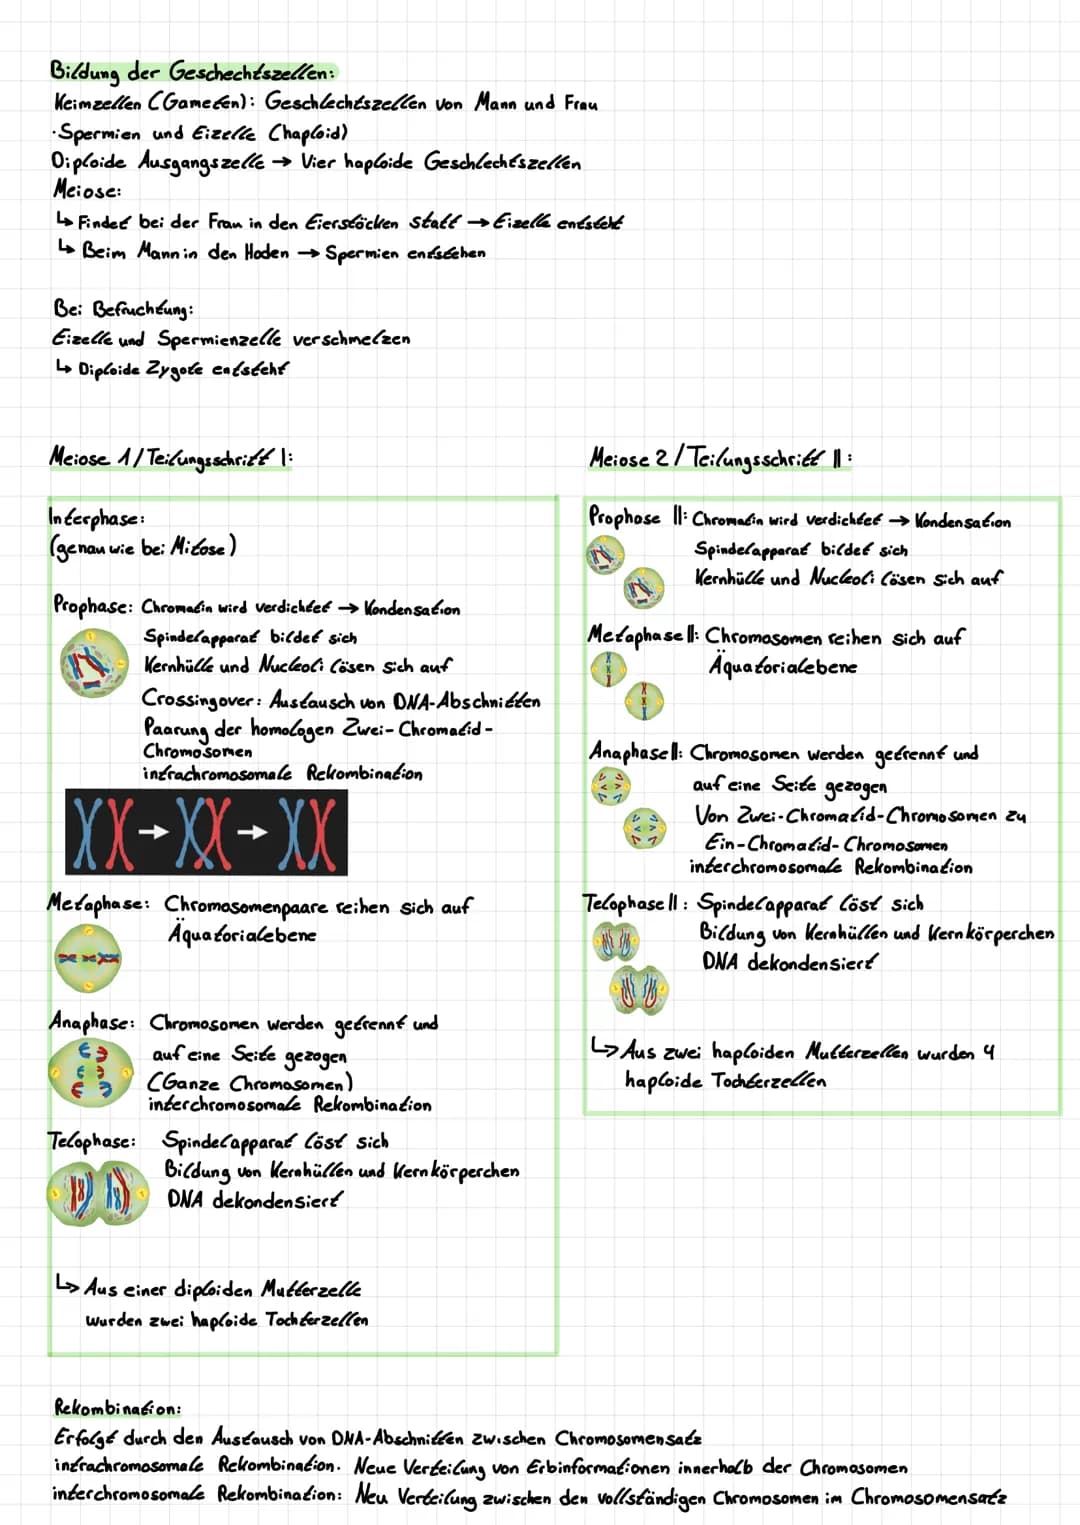 Bildung der Geschechtszellen:
Keimzellen (Gameten): Geschlechtszellen von Mann und Frau
·Spermien und Eizelle (haploid)
Diploide Ausgangszelle → Vier haploide Geschlechtszellen
Meiose:
↳ Findet bei der Frau in den Eierstöcken statt → Eizelle entsteht
↳ Beim Mann in den Hoden → Spermien entstehen
Bei Befruchtung:
Eizelle und Spermienzelle verschmelzen
↳ Diploide Zygote entsteht
Meiose 1/Teilungsschritt I:
Interphase:
(genau wie bei Mitose)
Prophase: Chromatin wird verdichtet → Kondensation
Spindelapparat bildet sich
Kernhülle und Nucleoli lösen sich auf
Crossingover: Austausch von DNA-Abschnitten
Paarung der homologen Zwei-Chromatid-
Chromosomen
intrachromosomale Rekombination
Metaphase: Chromosomenpaare reihen sich auf
Äquatorialebene
Anaphase: Chromosomen werden getrennt und
auf eine Seite gezogen
(Ganze Chromosomen)
interchromosomale Rekombination
Telophase: Spindelapparat löst sich
Bildung von Kernhüllen und Kernkörperchen
DNA dekondensiert
↳ Aus einer diploiden Mutterzelle
wurden zwei haploide Tochterzellen
Meiose 2/Teilungsschritt II:
Prophase II: Chromatin wird verdichtet → Kondensation
Spindelapparat bildet sich
Kernhülle und Nucleoli lösen sich auf
Metaphase II: Chromosomen reihen sich auf
Äquatorialebene
Anaphase II: Chromosomen werden getrennt und
auf eine Seite gezogen
Von Zwei-Chromatid-Chromosomen zu
Ein-Chromatid-Chromosomen
interchromosomale Rekombination
Telophase II: Spindelapparat löst sich
Bildung von Kernhüllen und Kernkörperchen
DNA dekondensiert
↳ Aus zwei haploiden Mutterzellen wurden 4
haploide Tochterzellen
Rekombination:
Erfolgt durch den Austausch von DNA-Abschnitten zwischen Chromosomensatz
intrachromosomale Rekombination. Neue Verteilung von Erbinformationen innerhalb der Chromosomen
interchromosomale Rekombination: Neu Verteilung zwischen den vollständigen Chromosomen im Chromosomensatz